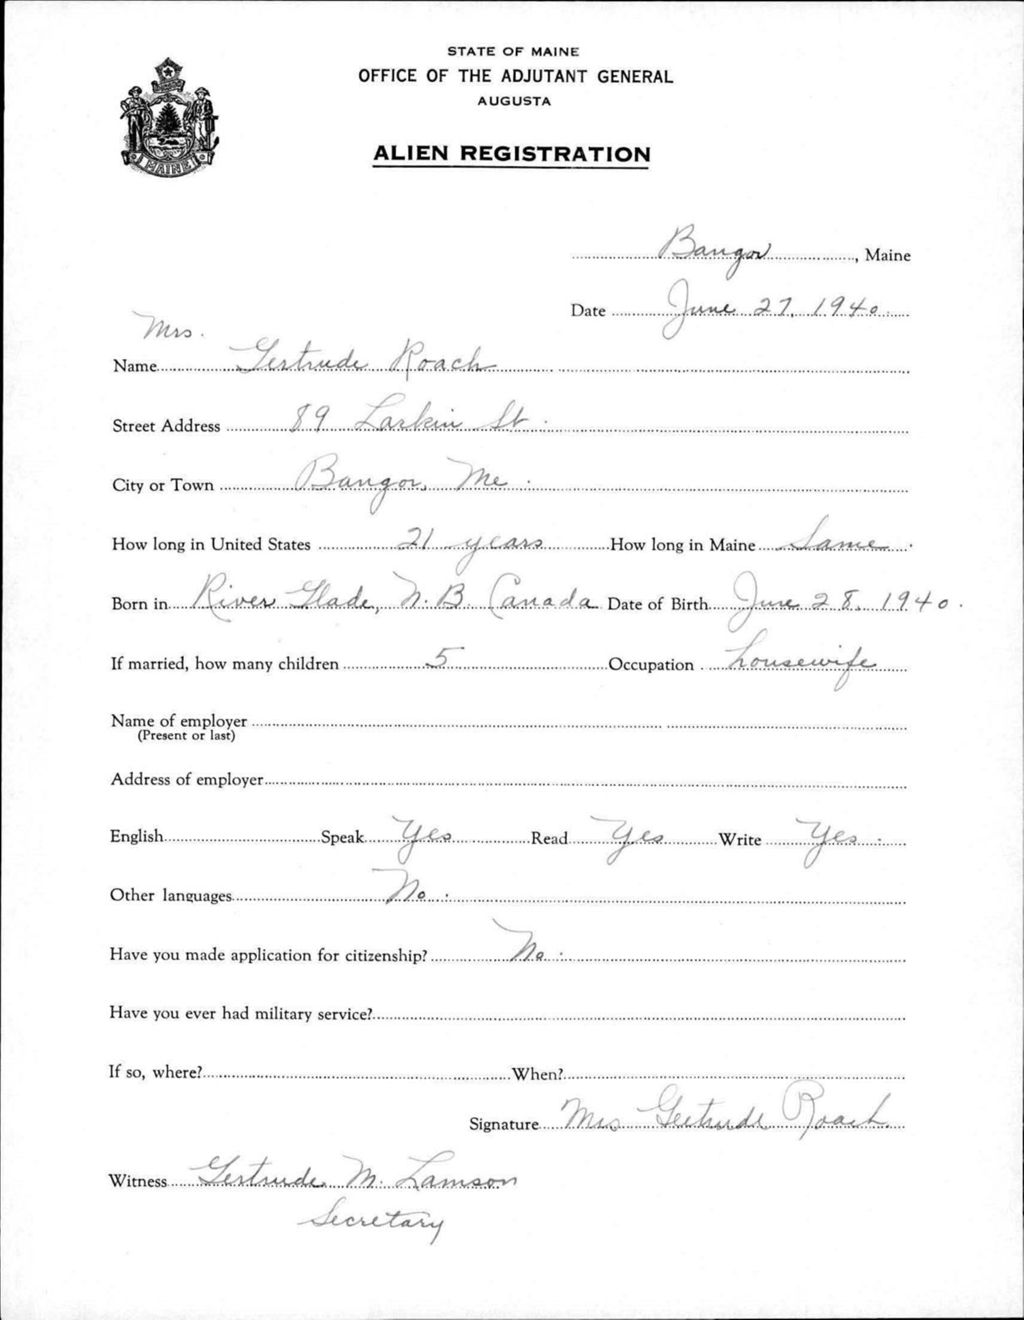 STATE OF MAINE
OFFICE OF THE ADJUTANT GENERAL
AUGUSTA
ALIEN REGISTRATION
MAINE
Bangor, Maine
Date June 27, 1940
Mrs.
Name Gertrude Roach
Street Address 89 Larkin St.
City or Town Bangor, Me.
How long in United States 21 years How long in Maine Same.
Born in River Glade, N.B. Canada Date of Birth June 28, 1940.
If married, how many children 5 Occupation housewife
Name of employer
(Present or last)
Address of employer
English Speak Yes Read Yes Write Yes.
Other languages No.
Have you made application for citizenship? No.
Have you ever had military service?
If so, where? When?
Signature Mrs Gertrude Roach
Witness Gertrude M. Lamson
Secretary